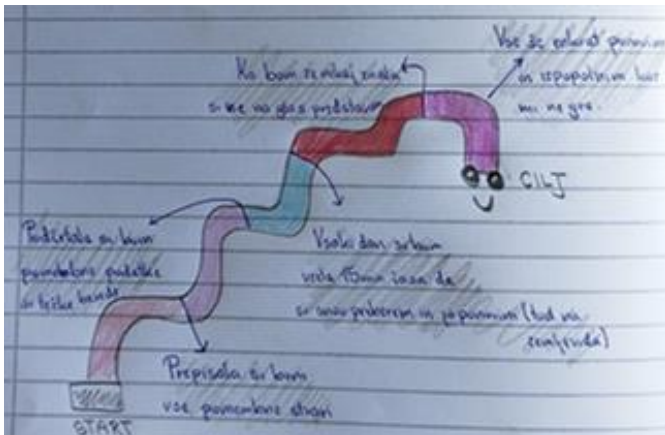 Vse še enkrat
in izpopolnim kar
mi ne gre.
Ko bom že nekaj znala
si ne na glas
CILJ
Podčrtala si bom
pomembne podatke
in težke besede
Vsaki dan si bom
vzela 15min časa da
si snov preberem in (tud na
zemljevidu)
Prepisala si bom
vse pomembne stvari
START